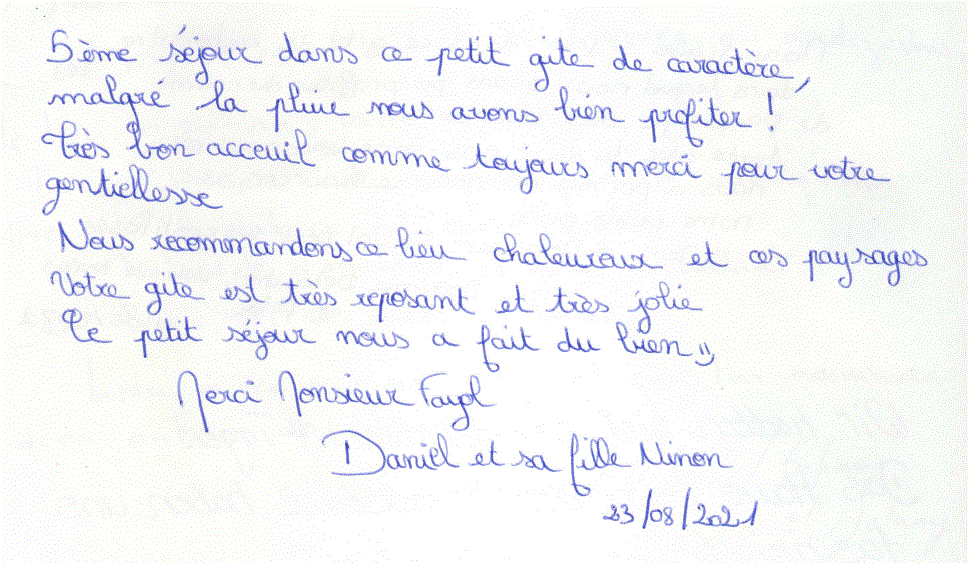 5ème séjour dans ce petit gite de caractère,
malgré la pluie nous avons bien profiter !
très bon acceuil comme toujours merci pour votre
gentiellesse
Nous recommandons ce lieu chaleureux et ces paysages
Votre gite est très reposant et très jolie
Ce petit séjour nous a fait du bien =)
Merci Monsieur Fayol
Daniel et sa fille Ninon
23/08/2021